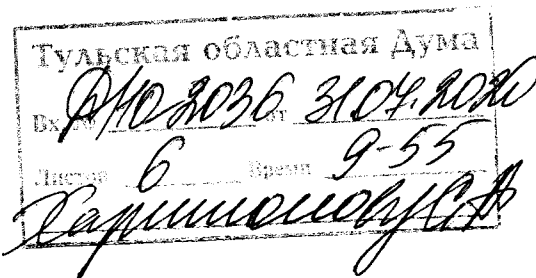 Тульская областная Дума
Вх. № РЮ2036 от 31.07.2020
Листов 6 Время 9-55
Харитонову С.А